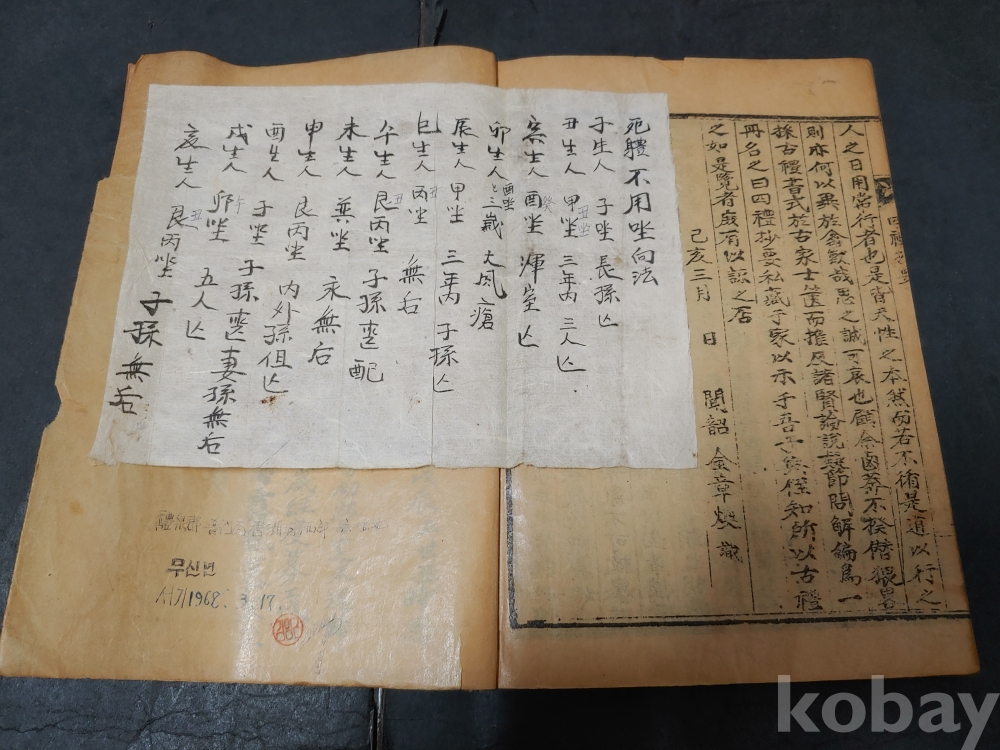 死體不用坐向法
子生人 子坐 長孫亡
丑生人 甲坐 三年內 三人亡
寅生人 酉坐 渾室亡
卯生人 酉坐 三歲 大風瘡
辰生人 甲坐 三年內 子孫亡
巳生人 丙坐 無后
午生人 艮丙坐 子孫喪配
未生人 巽坐 永無后
申生人 艮丙坐 內外孫俱亡
酉生人 子坐 子孫喪妻孫無后
戌生人 卯坐 五人亡
亥生人 艮丙坐 子孫無后
人之日用常行者也是皆天性之本然而若不循是道以行之
則亦何以異於禽獸哉思之誠可哀也顧余鹵莽不揆僭猥畧
採古禮書式於古家士篋而擔反諸賢論說疑節問解編爲一
冊名之曰四禮抄要私藏于家以示于吾子矣俾知所以古禮
之如是覽者庶有以諒之否
己亥三月 日 聞韶 金章 識
무신년
서기1968. 3. 17.
kobay